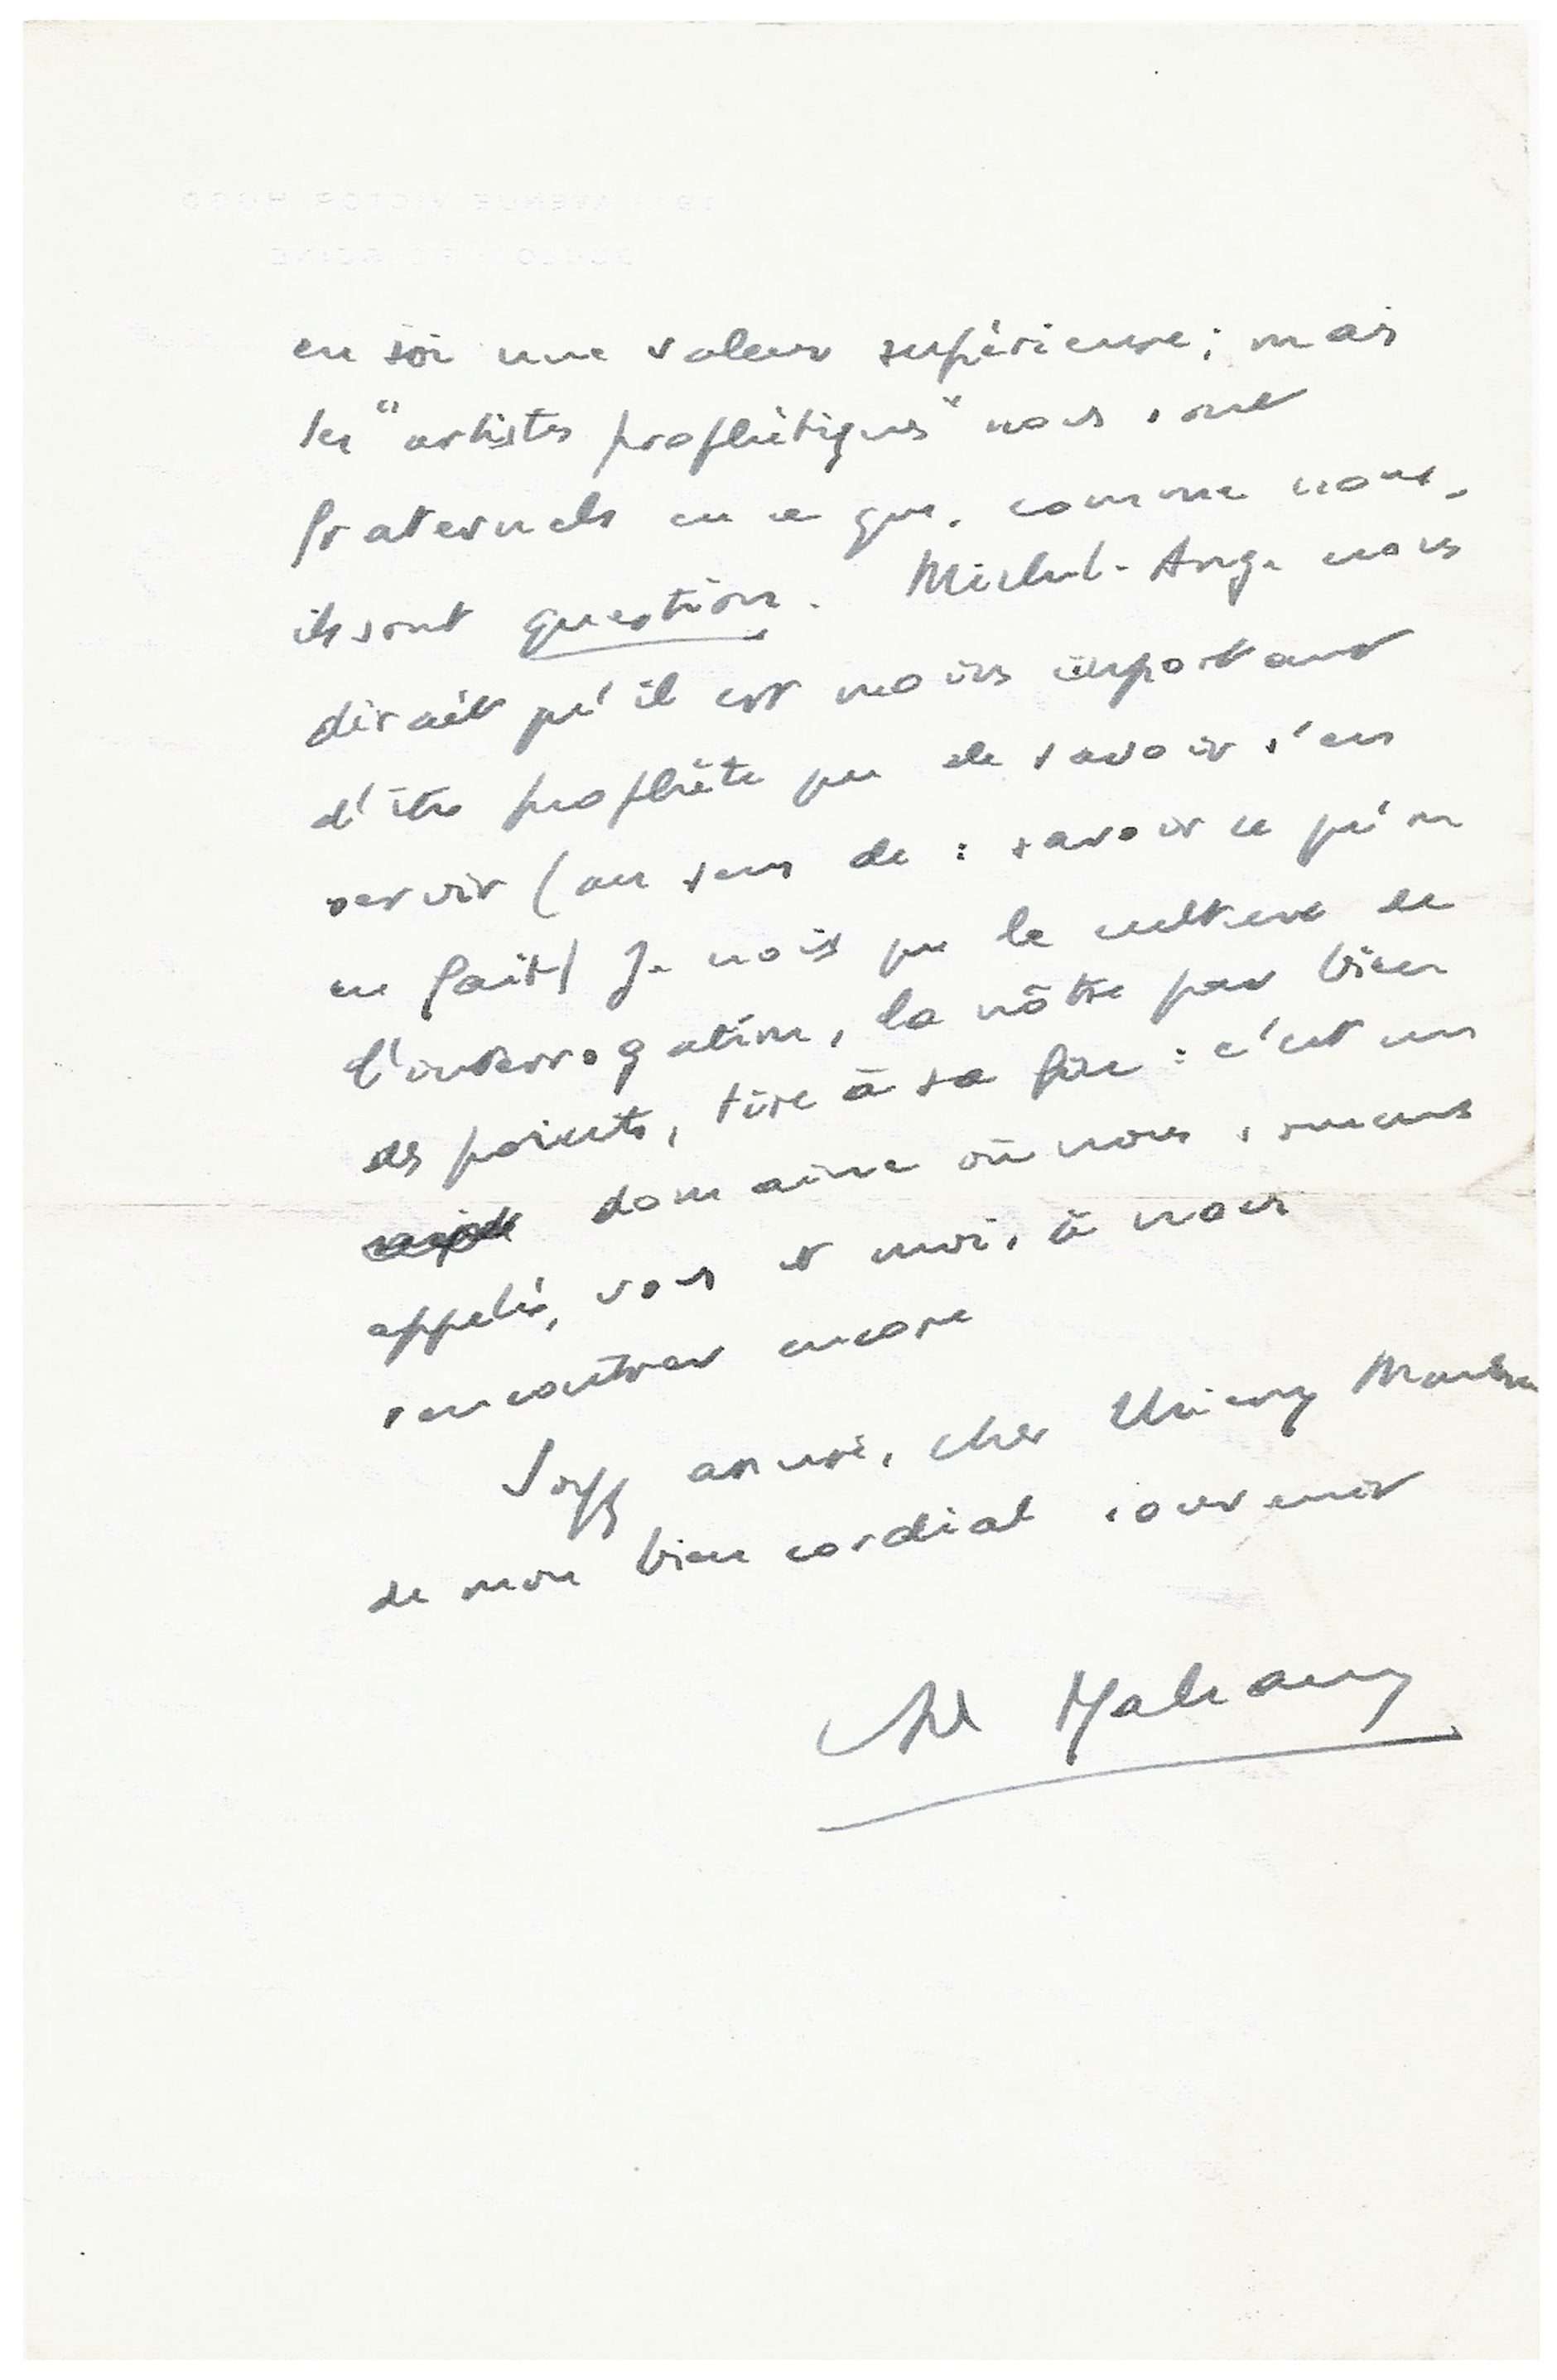 en soi une valeur supérieure ; mais
les "artistes prophétiques" nous sont
fraternels en ce que, comme nous,
ils sont question. Michel-Ange nous
dirait qu'il est moins important
d'être prophète que de savoir s'en
servir (au sens de : savoir ce qu'on
en fait) Je crois que la culture de
l'interrogation, la nôtre par bien
des points, tire à sa fin : c'est un
domaine où nous sommes
appelés, vous et moi, à nous
rencontrer encore
Soyez assuré, cher Thierry Maulnier
de mon bien cordial souvenir
André Malraux